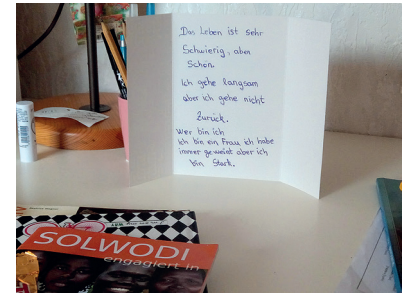 Das Leben ist sehr
Schwierig, aber
Schön.
Ich gehe langsam
aber ich gehe nicht
Zurück.
Wer bin ich
ich bin ein Frau ich habe
immer geweint aber ich
bin Stark.
SOLWODI
engagiert in